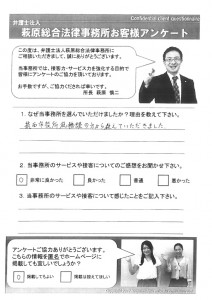 Confidential Client Questionnaire
弁護士法人
萩原総合法律事務所お客様アンケート
この度は、弁護士法人萩原総合法律事務所に
ご相談いただきまして、誠にありがとうございます。
当事務所では、接客力・サービス力を強化する目的で
皆様にアンケートのご協力を頂いております。
お手数ですが、ご協力くだされば幸いです。
所長 萩原 慎二
1. なぜ当事務所を選んでいただけましたか?理由を教えて下さい。
2. 当事務所のサービスや接客についてのご感想をお聞かせ下さい。
○ 非常に良かった
良かった
普通
悪かった
3. 当事務所のサービスや接客について感じたことをご記入下さい。
アンケートご協力ありがとうございます。
こちらの情報を匿名でホームページに
掲載しても宜しいでしょうか?
○ 掲載してもよい
掲載は控えてほしい